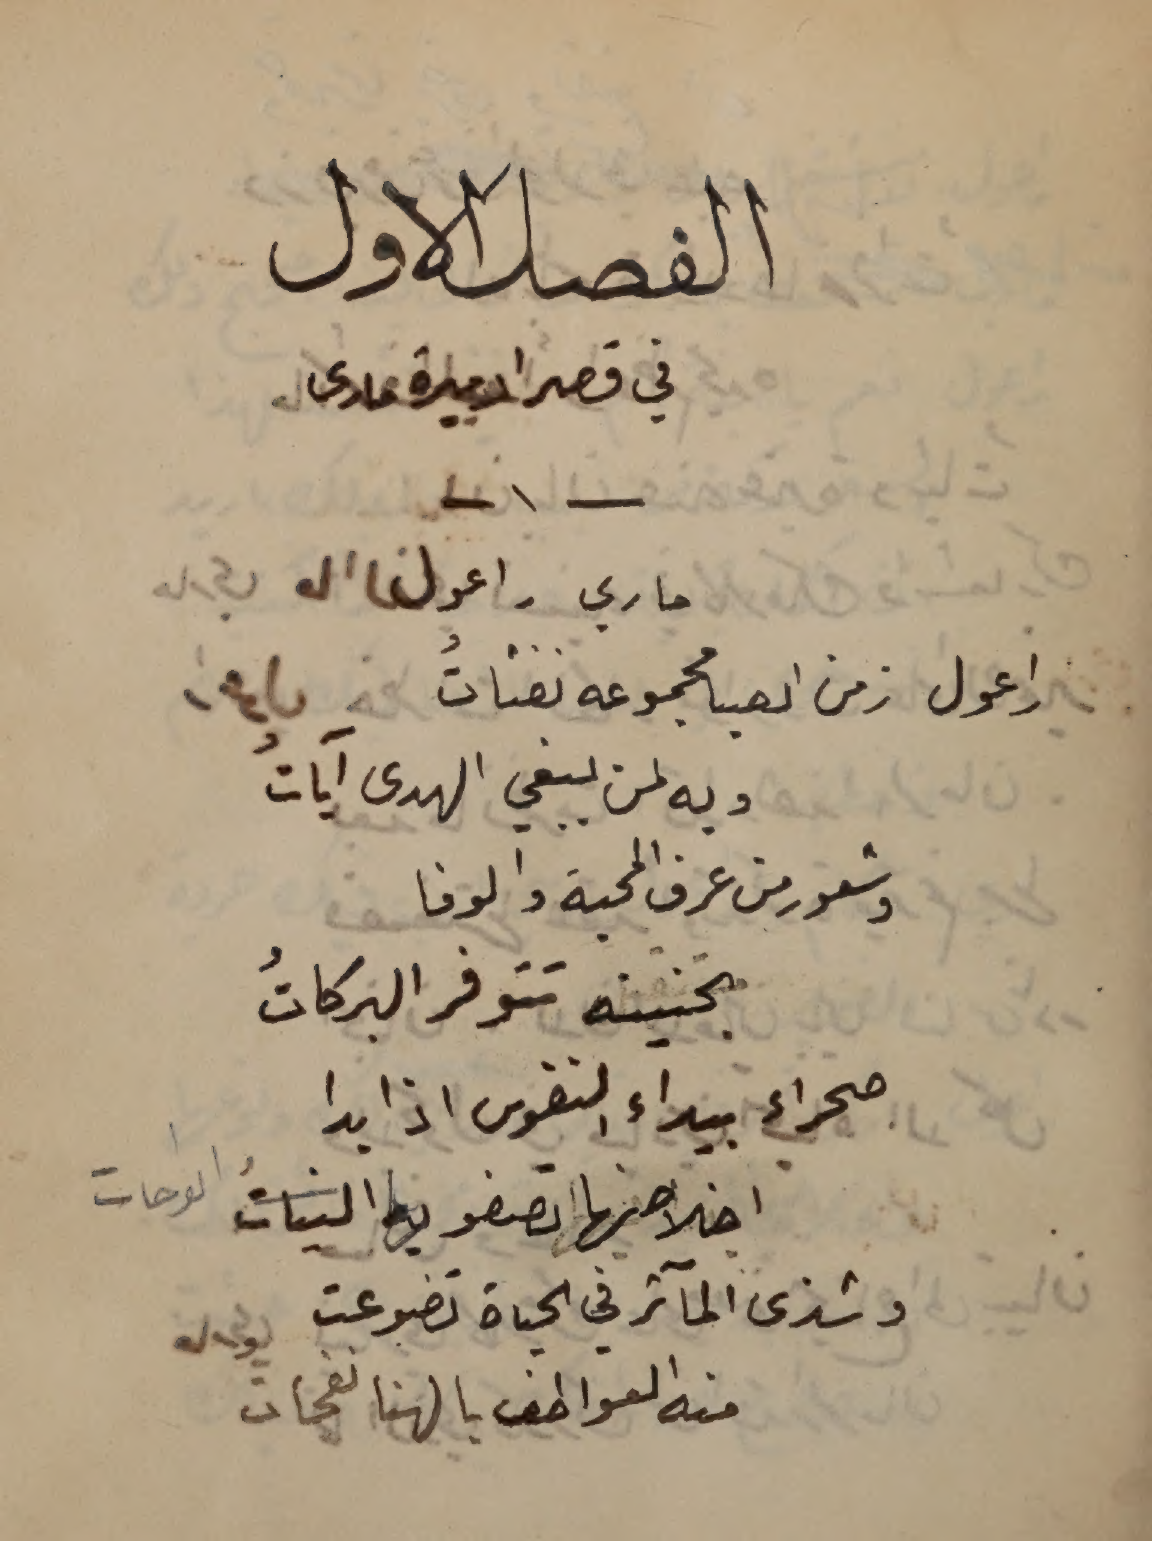 الفصل الاول
في قصر الاميرة ماري
— ١ —
ماري راعول
راعول زمن الصبا مجموعه نفثاتُ
وبه لمن يبغي الهدى آياتُ
وشعور من عرف المحبة والوفا
بجنينه تتوفر البركاتُ
صحراء بيداء النفوس اذا بدا
اخلاصها تصفو بها النياتُ الواحات
وشذى المآثر في الحياة تضوعت
منه العواطف بالهنا نفحات